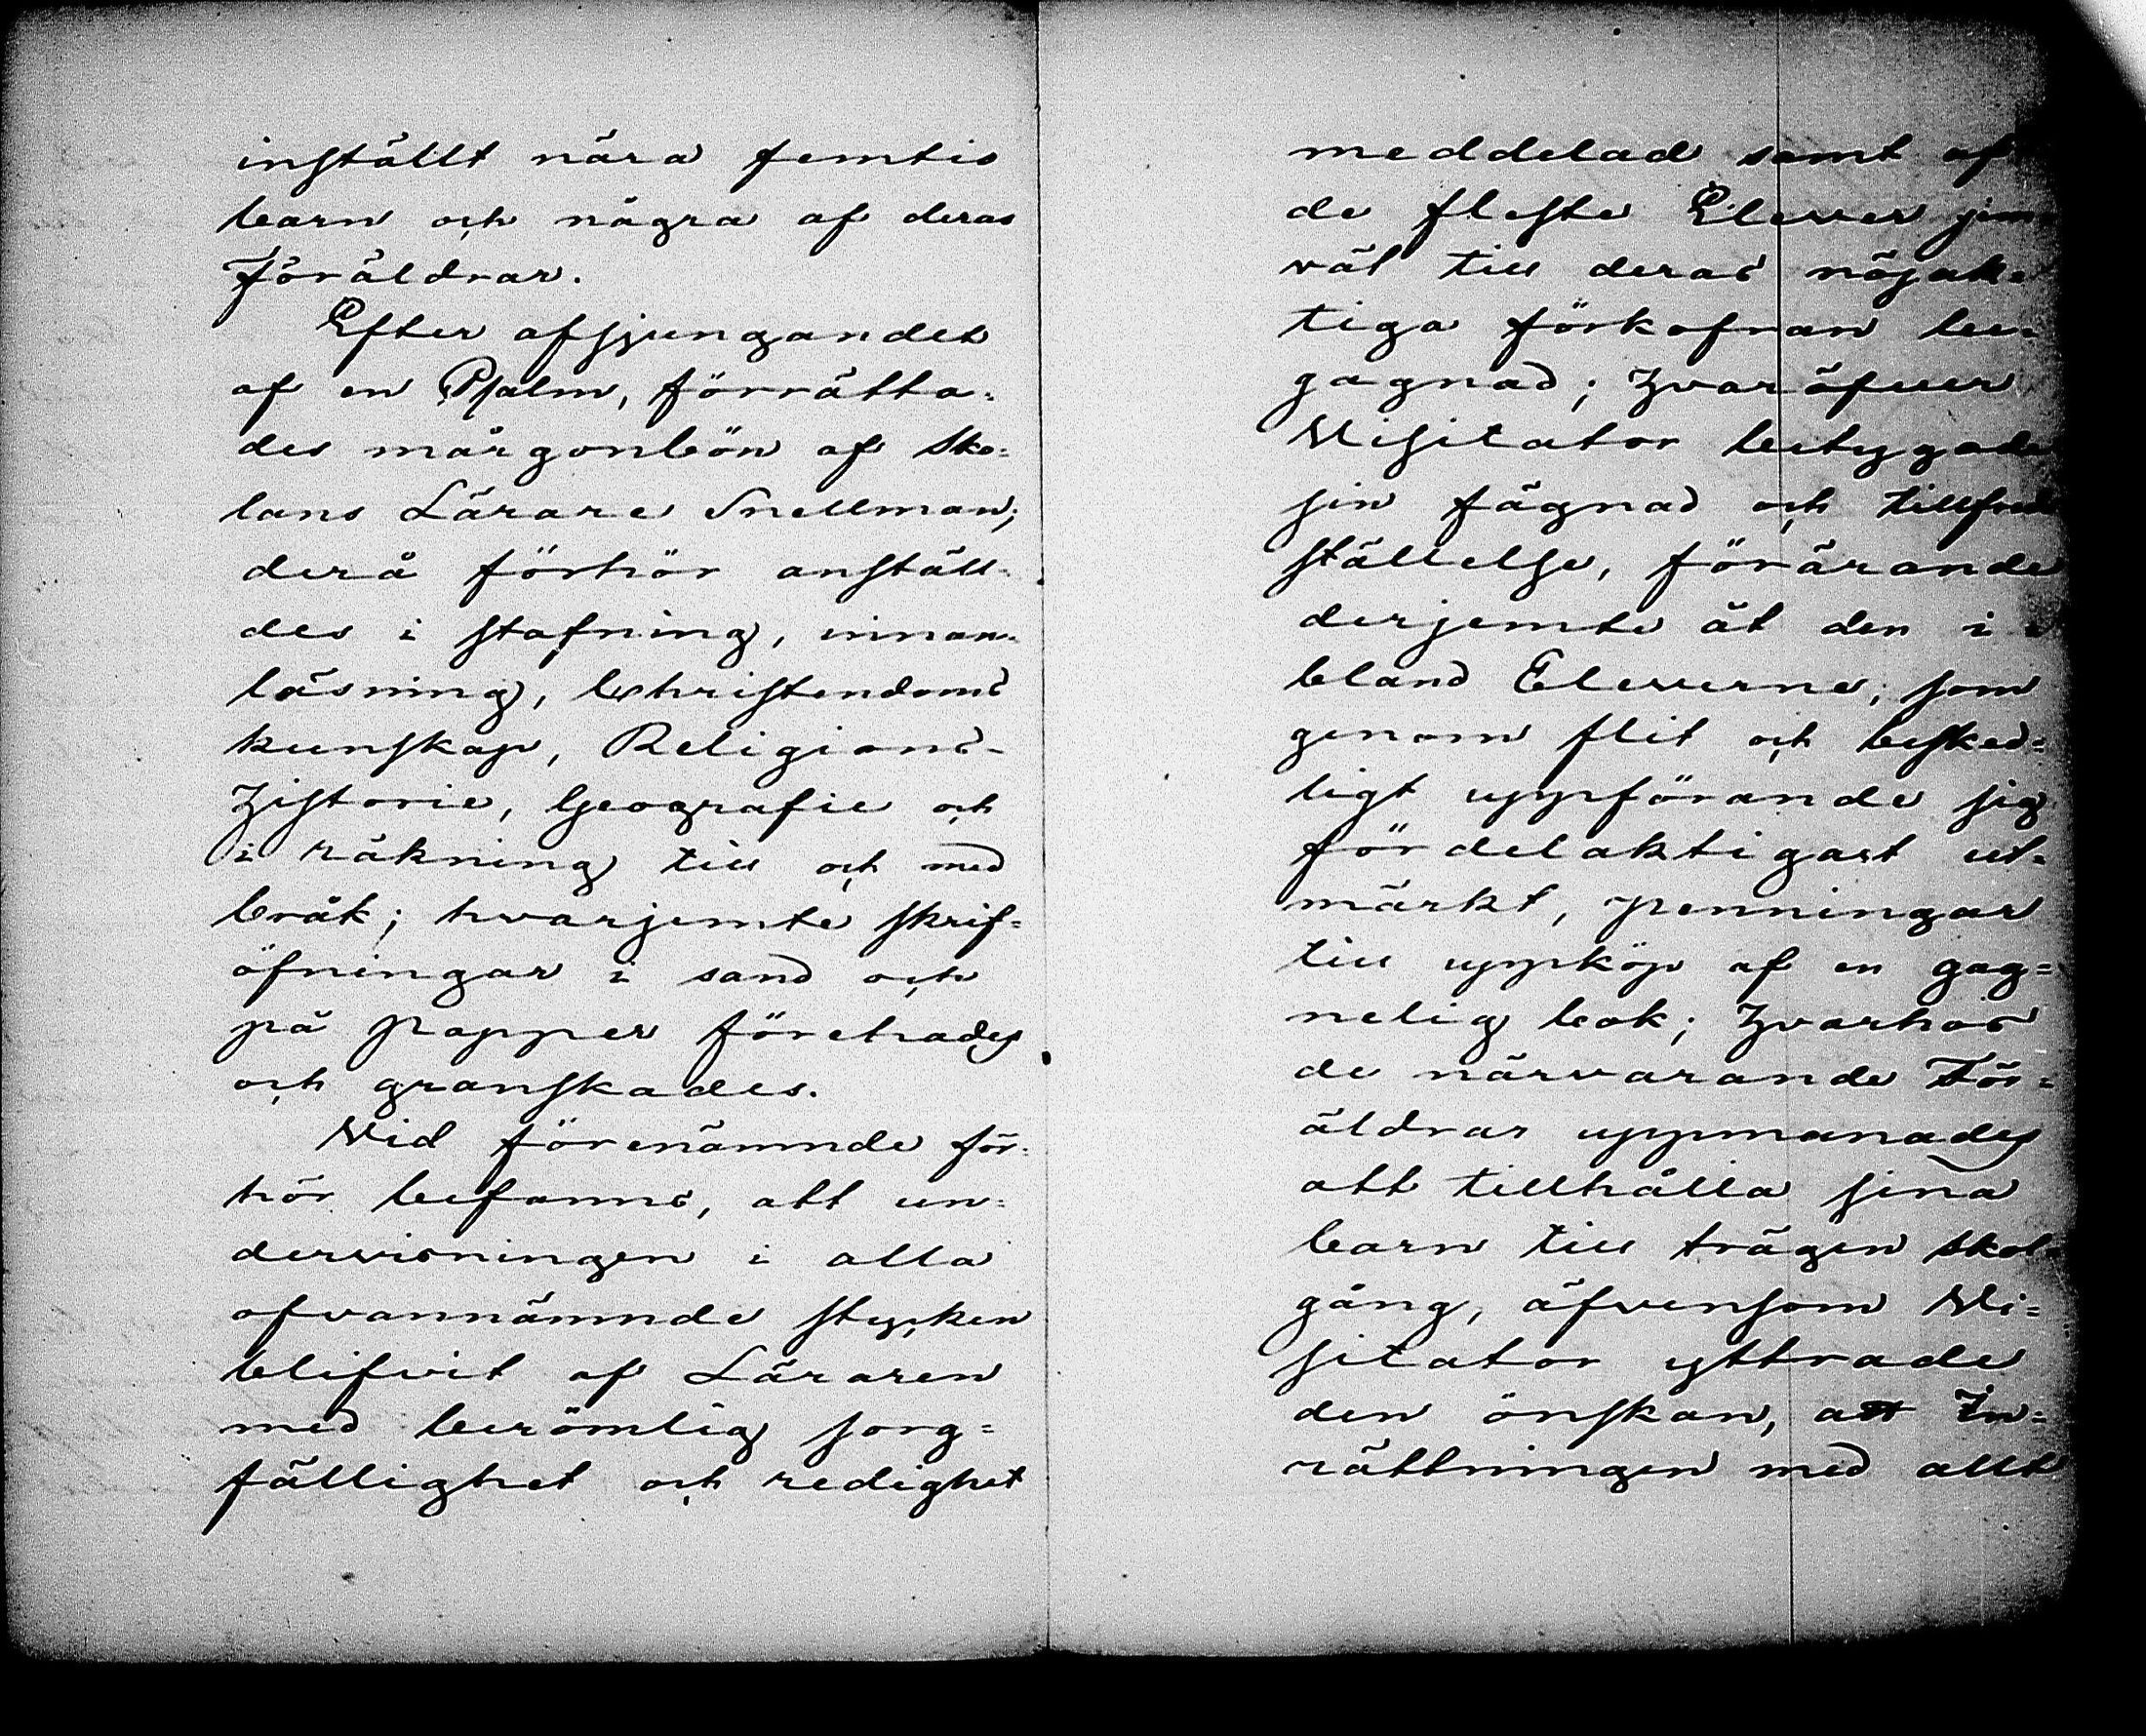 inställt nära femtio
barn och några af deras
Föräldrar.
Efter afsjungandet
af en Psalm, förrätta-
des morgonbön af Sko-
lans Lärare Snellman;
derå förhör anställ-
des i stafning, innan-
läsning, Christendoms
kunskap, Religions-
Historie, Geografie och
i räkning till och med
bråk; hvarjemte skrif-
öfningar i sand och
på papper förehades
och granskades.
Vid förenämnde för-
hör befanns, att un-
dervisningen i alla
ofvannämnde stycken
blifvit af Läraren
med berömlig sorg-
fällighet och redighet
meddelad samt af
de fleste Elever jem-
väl till deras nöjak-
tiga förkofran be-
gagnad; Hvaröfver
Visitator betygade
sin fägnad och tillfreds
ställelse, förärande
derjemte åt den i-
bland Eleverne, som
genom flit och besked-
ligt uppförande sig
fördelaktigast ut-
märkt, penningar
till uppköp af en gag-
nelig bok; Hvarhos
de närvarande För-
äldrar uppmanades
att tillhålla sina
barn till trägen skol-
gång, äfvensom Vi-
sitator yttrade
den önskan, att In-
rättningen med allt